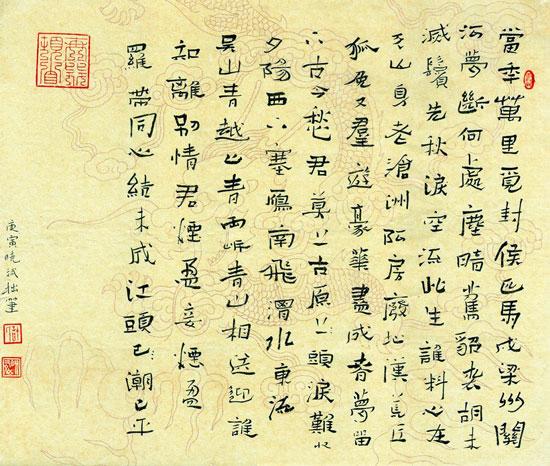 當年萬里覓封侯匹馬戍梁州關
河夢斷何上處塵暗舊貂裘胡未
滅鬢先秋淚空流此生誰料心在
天山身老滄洲阿房廢址漢荒丘
狐兔又羣遊豪華盡成春夢留
下古今愁君莫上古原上頭淚難收
夕陽西下塞鴈南飛渭水東流
吳山青越山青兩岸青山相送迎誰
知離別情君淚盈妾淚盈
羅帶同心結未成江頭已潮已平
庚寅曉拙筆